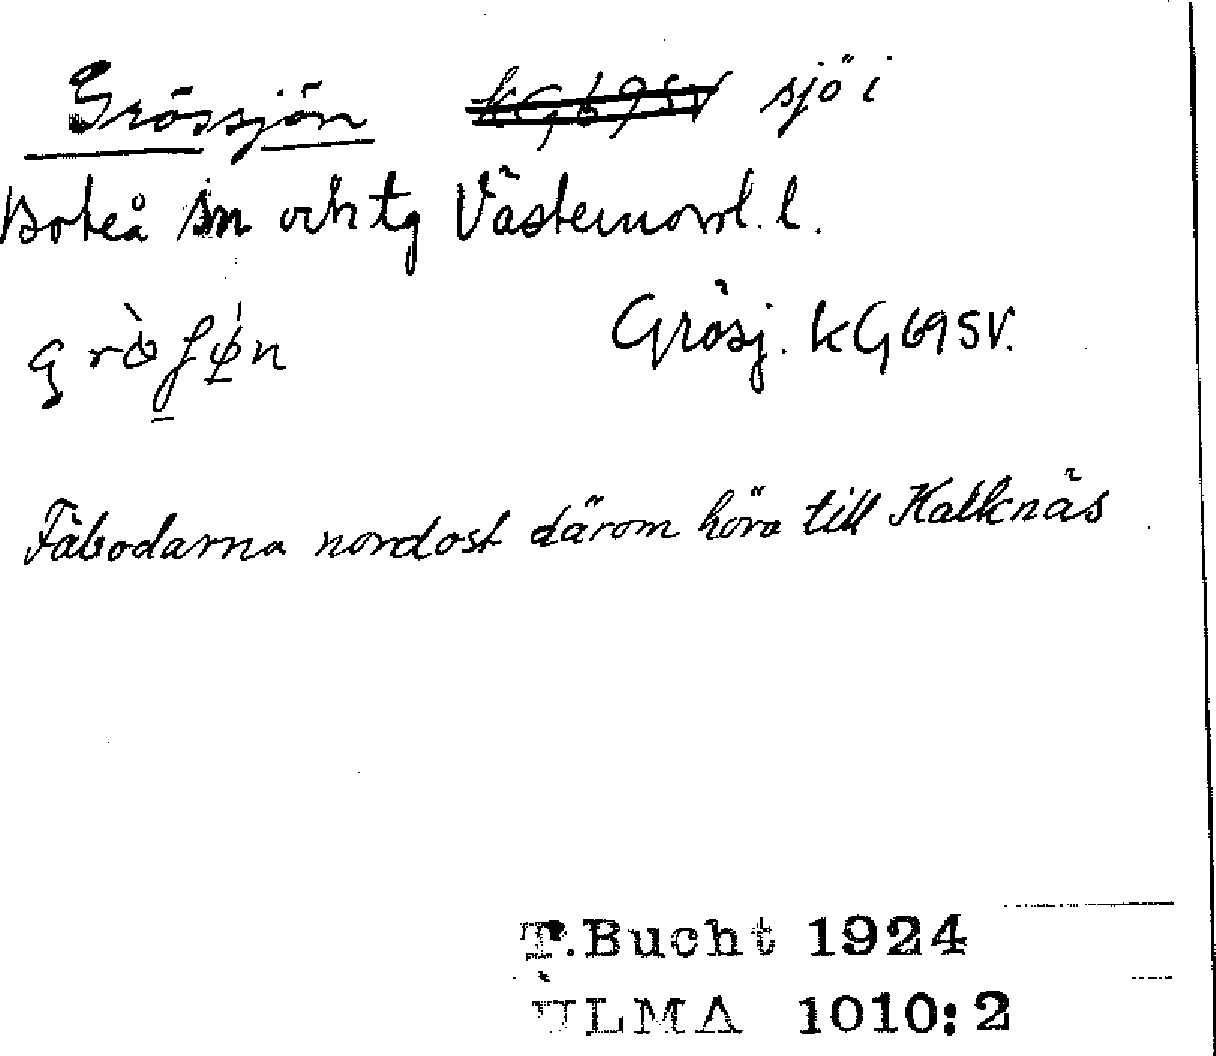 Grössjön kG69SV sjö i
Boteå sn och tg Västernorrl. l.
Grösj. kG69SV.
Fäbodarna nordost därom höra till Kalknäs
T.Bucht 1924
ULMA 1010:2